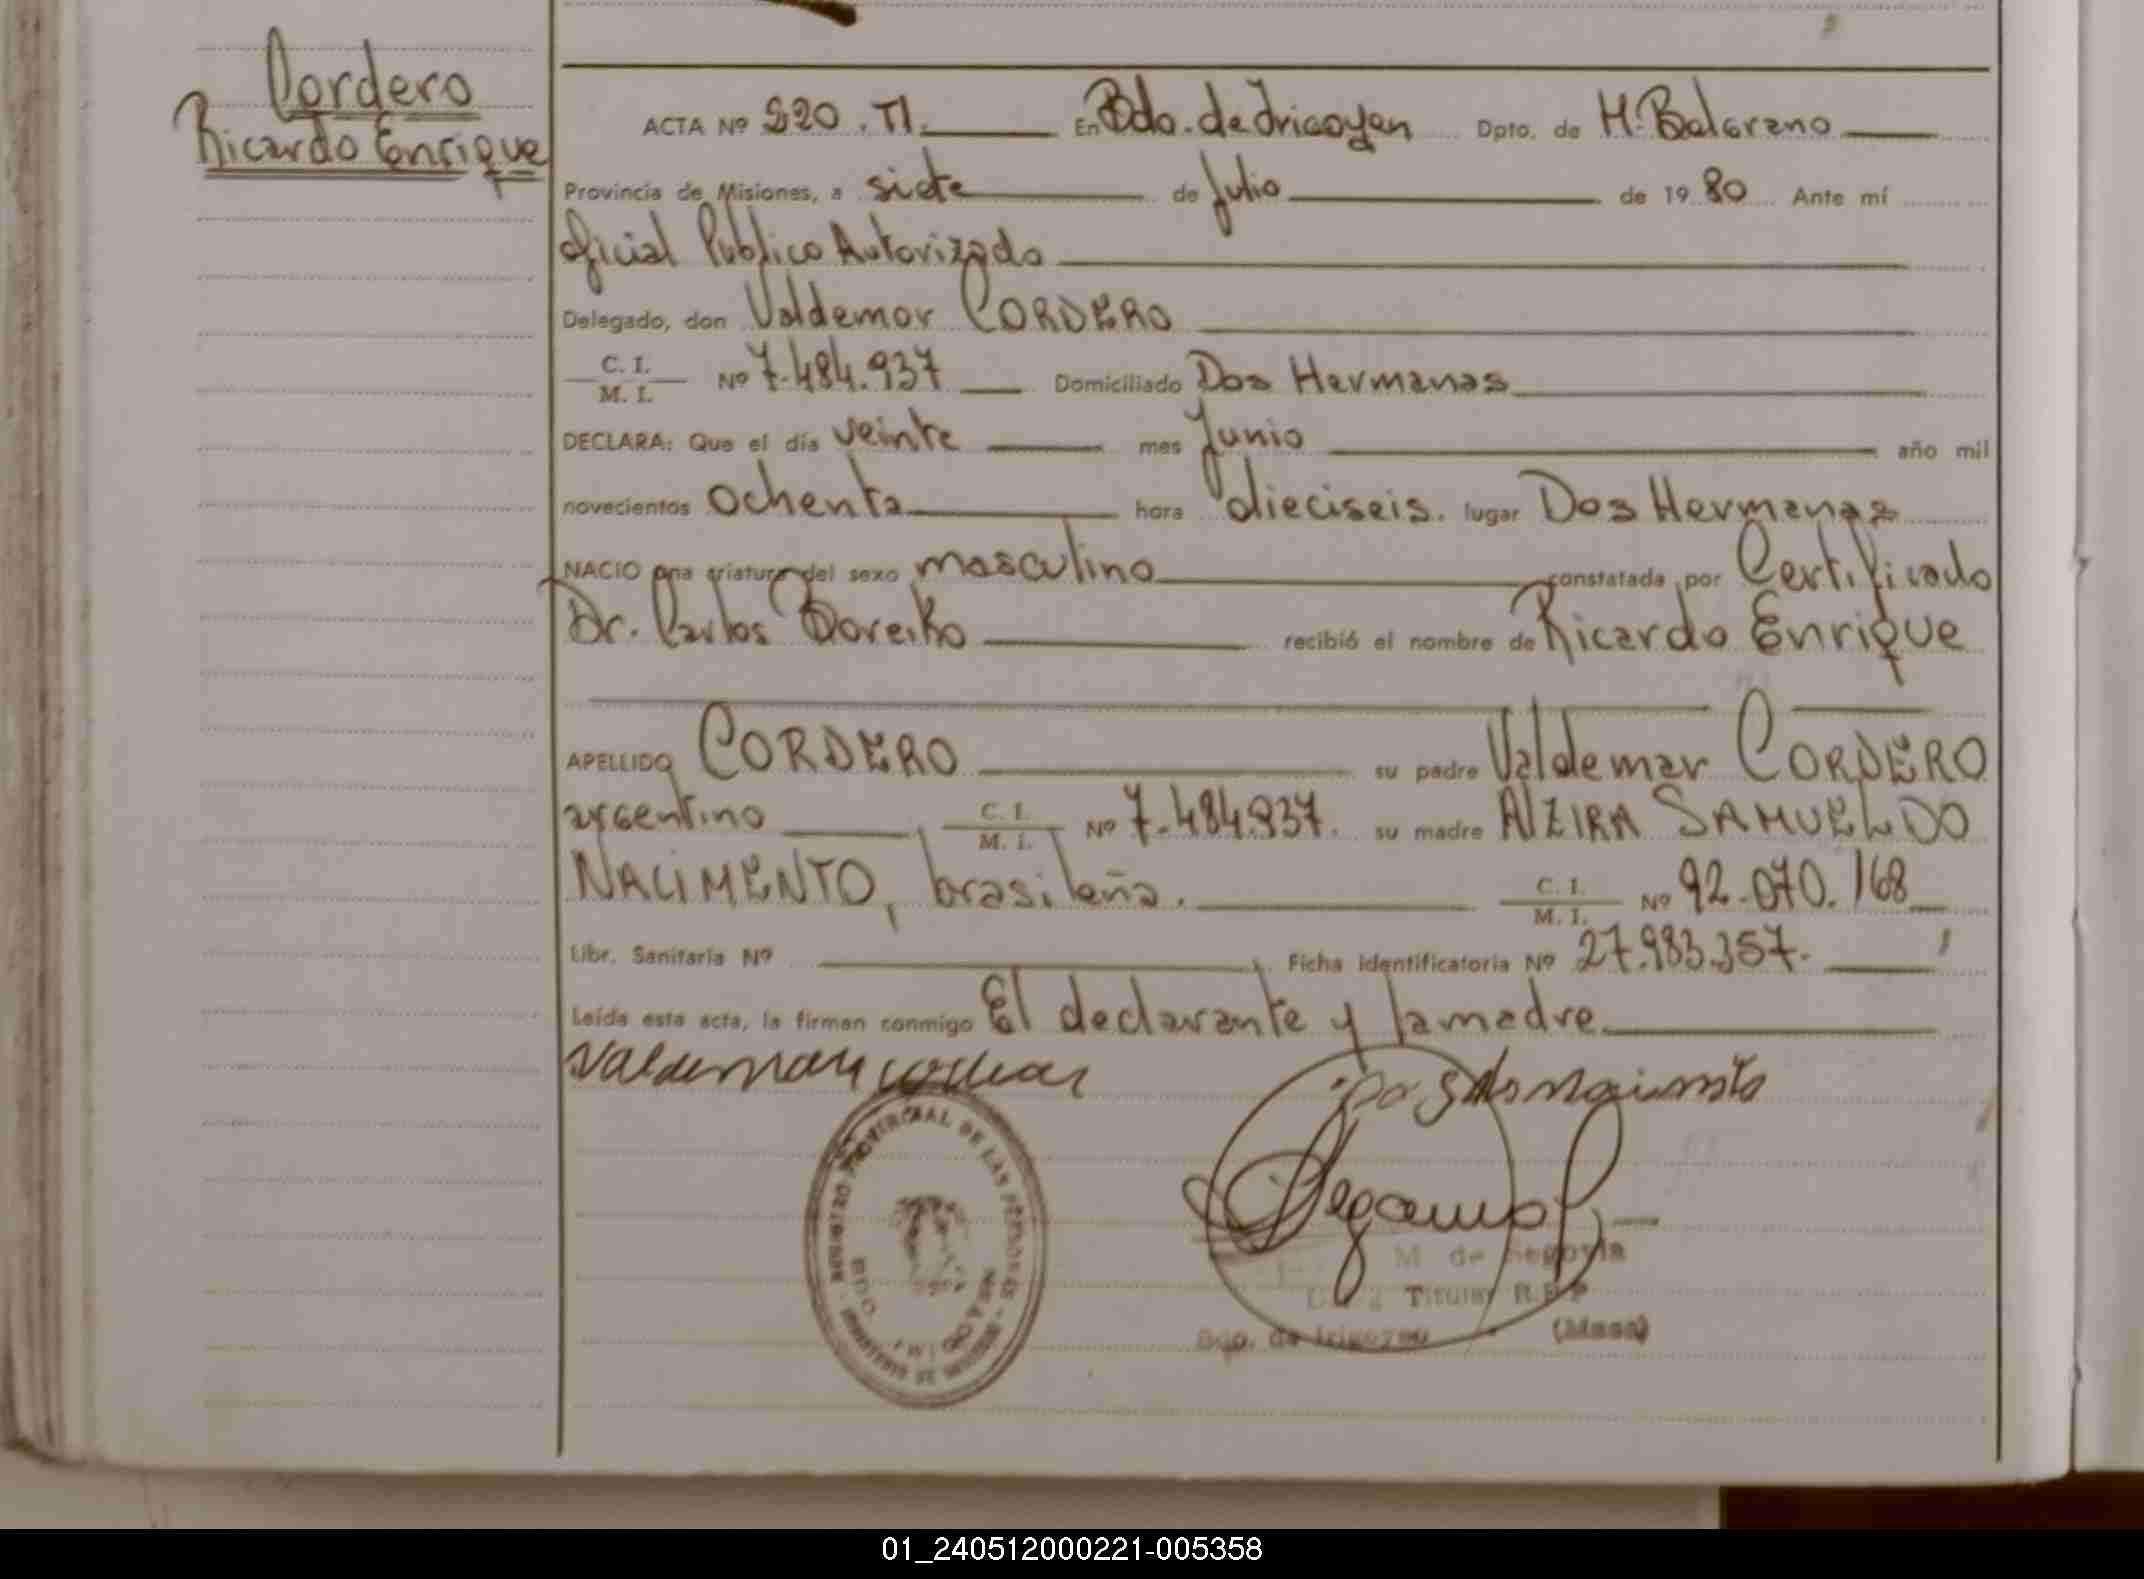 Cordero
Ricardo Enrique
ACTA Nº 220. TI. En Bdo. de Irigoyen Dpto. de M. Belgrano
Provincia de Misiones, a siete de Julio de 1980 Ante mí
Oficial Público Autorizado
Delegado, don Valdemar CORDERO
C. I.
M. I. Nº 7.484.937 Domiciliado Dos Hermanas
DECLARA: Que el día veinte mes Junio año mil
novecientos ochenta hora dieciseis. lugar Dos Hermanas
NACIO una criatura del sexo masculino constatada por Certificado
Dr. Carlos Doreiko recibió el nombre de Ricardo Enrique
APELLIDO CORDERO su padre Valdemar CORDERO
argentino C. I. M. I. Nº 7.484.937. su madre AlZIRA SAMUEL DO
NACIMENTO, brasileña. C. I. M. I. Nº 92.070.168
Libr. Sanitaria Nº Ficha Identificatoria Nº 27.983.357.
Leída esta acta, la firman conmigo El declarante y la madre
Valdemar
PROVINCIAL DE LAS PERSONAS
BDO.
M de Segovia
Titular R.P.P
Bdo. de Irigoyen (Mnes)
01_240512000221-005358